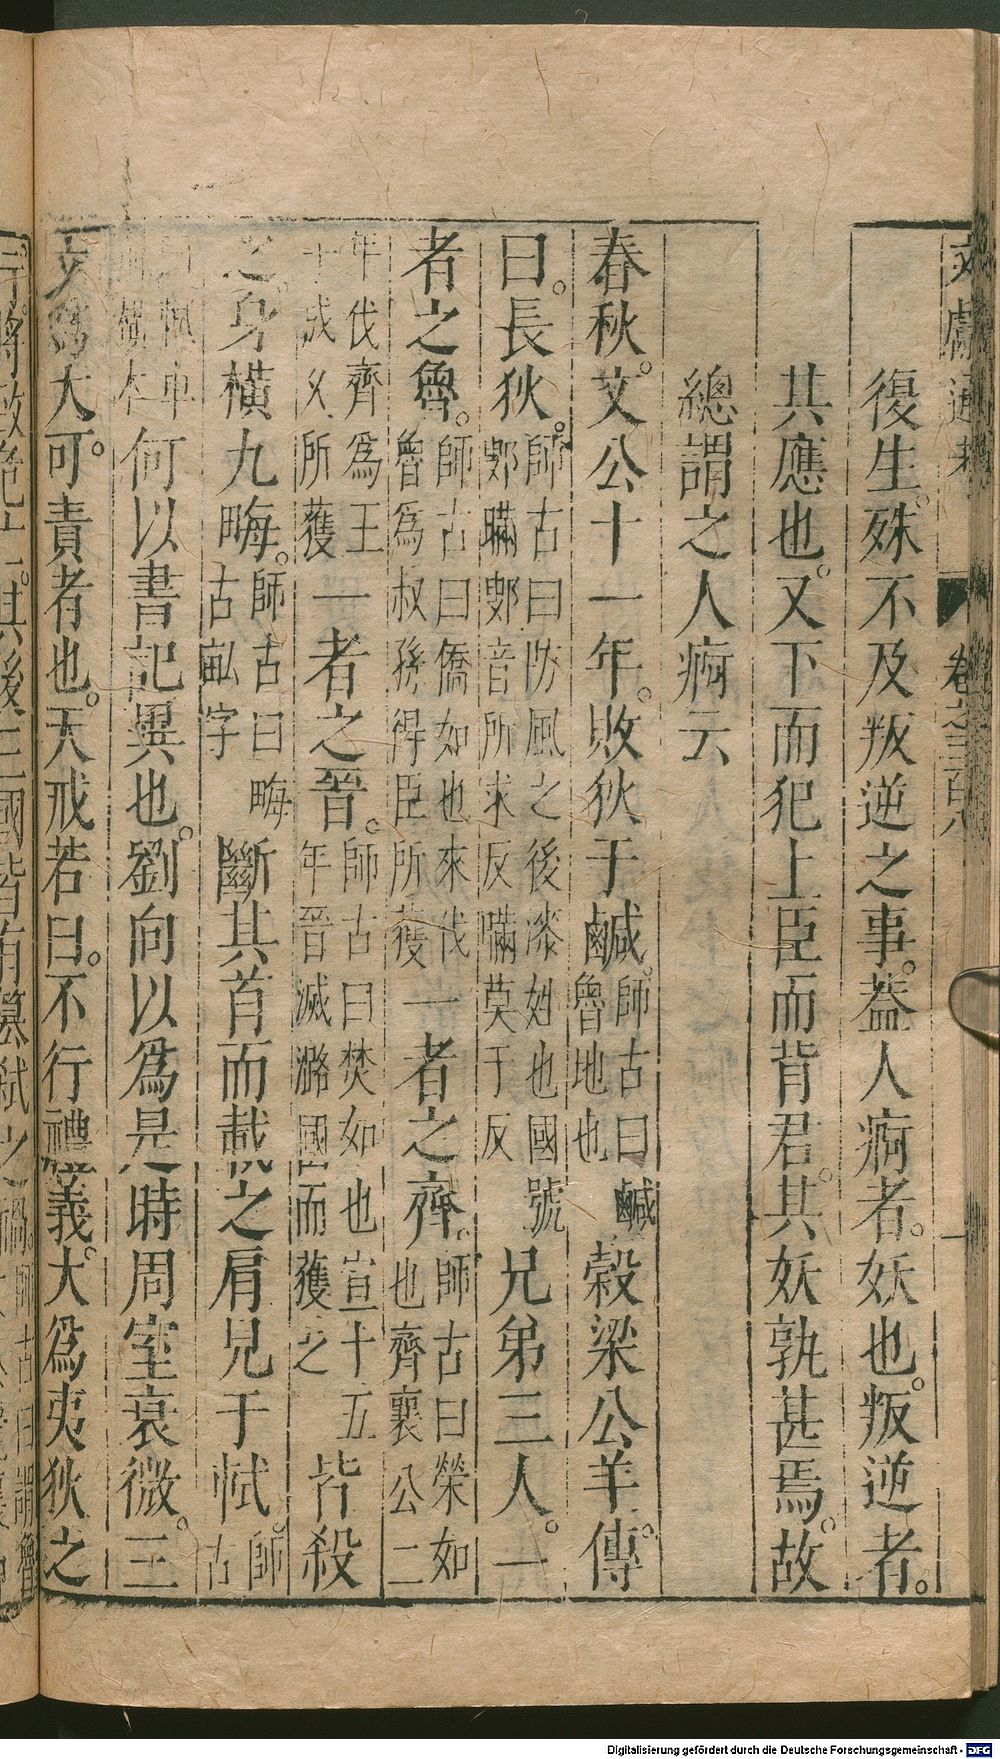 文獻通考 卷之三百八 一
復生。殊不及叛逆之事。蓋人痾者。妖也。叛逆者。
其應也。又下而犯上臣而背君。其妖孰甚焉。故
總謂之人痾云
春秋。文公十一年。敗狄于鹹。師古曰鹹魯地也 穀梁公羊傳。
曰。長狄。師古曰防風之後漆姓也國號鄋瞞鄋音所求反瞞莫于反 兄弟三人。一
者之魯。師古曰僑如也來伐魯爲叔孫得臣所獲 一者之齊。師古曰榮如也齊襄公二
年伐齊爲王子成父所獲 一者之晉。師古曰焚如也宣十五年晉滅潞國而獲之 皆殺
之。身橫九畮。師古曰畮古畝字 斷其首而載之肩見于軾。師古
曰軾車前橫木 何以書記異也。劉向以爲是時周室衰微。三
大。可責者也。天戒若曰。不行禮義。大爲夷狄之
行。將致危亡。其後三國皆有篡弒之禍。師古曰謂魯
Digitalisierung gefördert durch die Deutsche Forschungsgemeinschaft - DFG